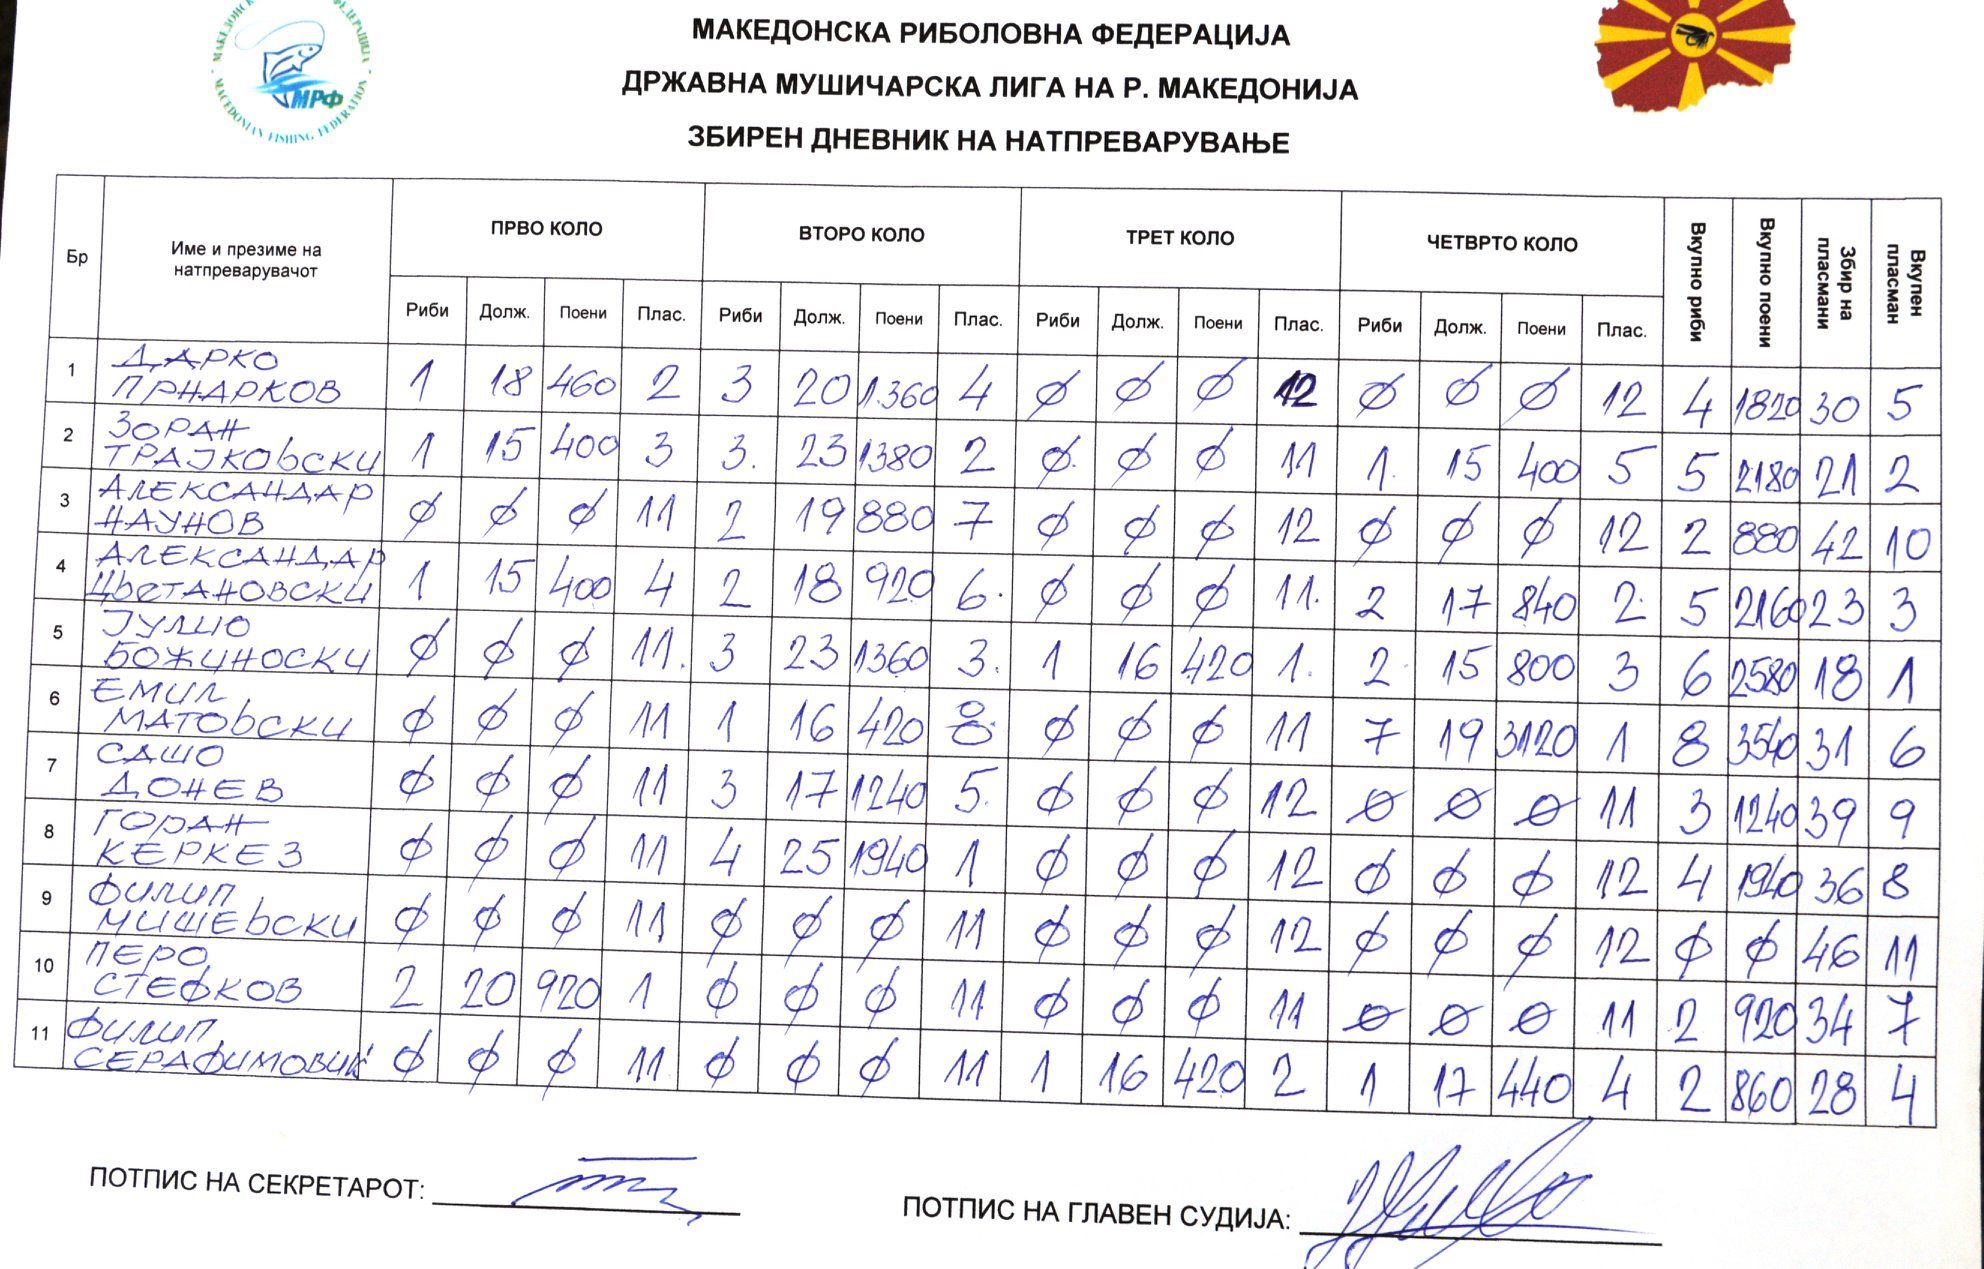 МАКЕДОНСКА РИБОЛОВНА ФЕДЕРАЦИЈА
ДРЖАВНА МУШИЧАРСКА ЛИГА НА Р. МАКЕДОНИЈА
ЗБИРЕН ДНЕВНИК НА НАТПРЕВАРУВАЊЕ
МРФ
MACEDONIAN FISHING FEDERATION
Бр Име и презиме на натпреварувачот ПРВО КОЛО ВТОРО КОЛО ТРЕТ КОЛО ЧЕТВРТО КОЛО Вкупно риби Вкупно поени Збир на пласмани Вкупен пласман
Риби Долж. Поени Плас. Риби Долж. Поени Плас. Риби Долж. Поени Плас. Риби Долж. Поени Плас.
1 ДАРКО ПРНАРКОВ 1 18 460 2 3 20 1.360 4 Ø Ø Ø 12 Ø Ø Ø 12 4 1820 30 5
2 ЗОРАН ТРАЈКОВСКИ 1 15 400 3 3. 23 1380 2 Ø. Ø Ø 11 1. 15 400 5 5 2180 21 2
3 АЛЕКСАНДАР НАУНОВ Ø Ø Ø 11 2 19 880 7 Ø Ø Ø 12 Ø Ø Ø 12 2 880 42 10
4 АЛЕКСАНДАР ЦВЕТАНОВСКИ 1 15 400 4 2 18 920 6. Ø Ø Ø 11. 2 17 840 2. 5 2160 23 3
5 ЈУЛИО БОЖИНОСКИ Ø Ø Ø 11. 3 23 1360 3. 1 16 420 1. 2. 15 800 3 6 2580 18 1
6 ЕМИЛ МАТОВСКИ Ø Ø Ø 11 1 16 420 8. Ø Ø Ø 11 7 19 3120 1 8 3540 31 6
7 САШО ДОНЕВ Ø Ø Ø 11 3 17 1240 5. Ø Ø Ø 12 Ø Ø Ø 11 3 1240 39 9
8 ГОРАН КЕРКЕЗ Ø Ø Ø 11 4 25 1940 1 Ø Ø Ø 12 Ø Ø Ø 12 4 1940 36 8
9 ФИЛИП МИШЕВСКИ Ø Ø Ø 11 Ø Ø Ø 11 Ø Ø Ø 12 Ø Ø Ø 12 Ø Ø 46 11
10 ПЕРО СТЕФКОВ 2 20 920 1 Ø Ø Ø 11 Ø Ø Ø 11 Ø Ø Ø 11 2 920 34 7
11 ФИЛИП СЕРАФИМОВИЌ Ø Ø Ø 11 Ø Ø Ø 11 1 16 420 2 1 17 440 4 2 860 28 4
ПОТПИС НА СЕКРЕТАРОТ:
ПОТПИС НА ГЛАВЕН СУДИЈА: